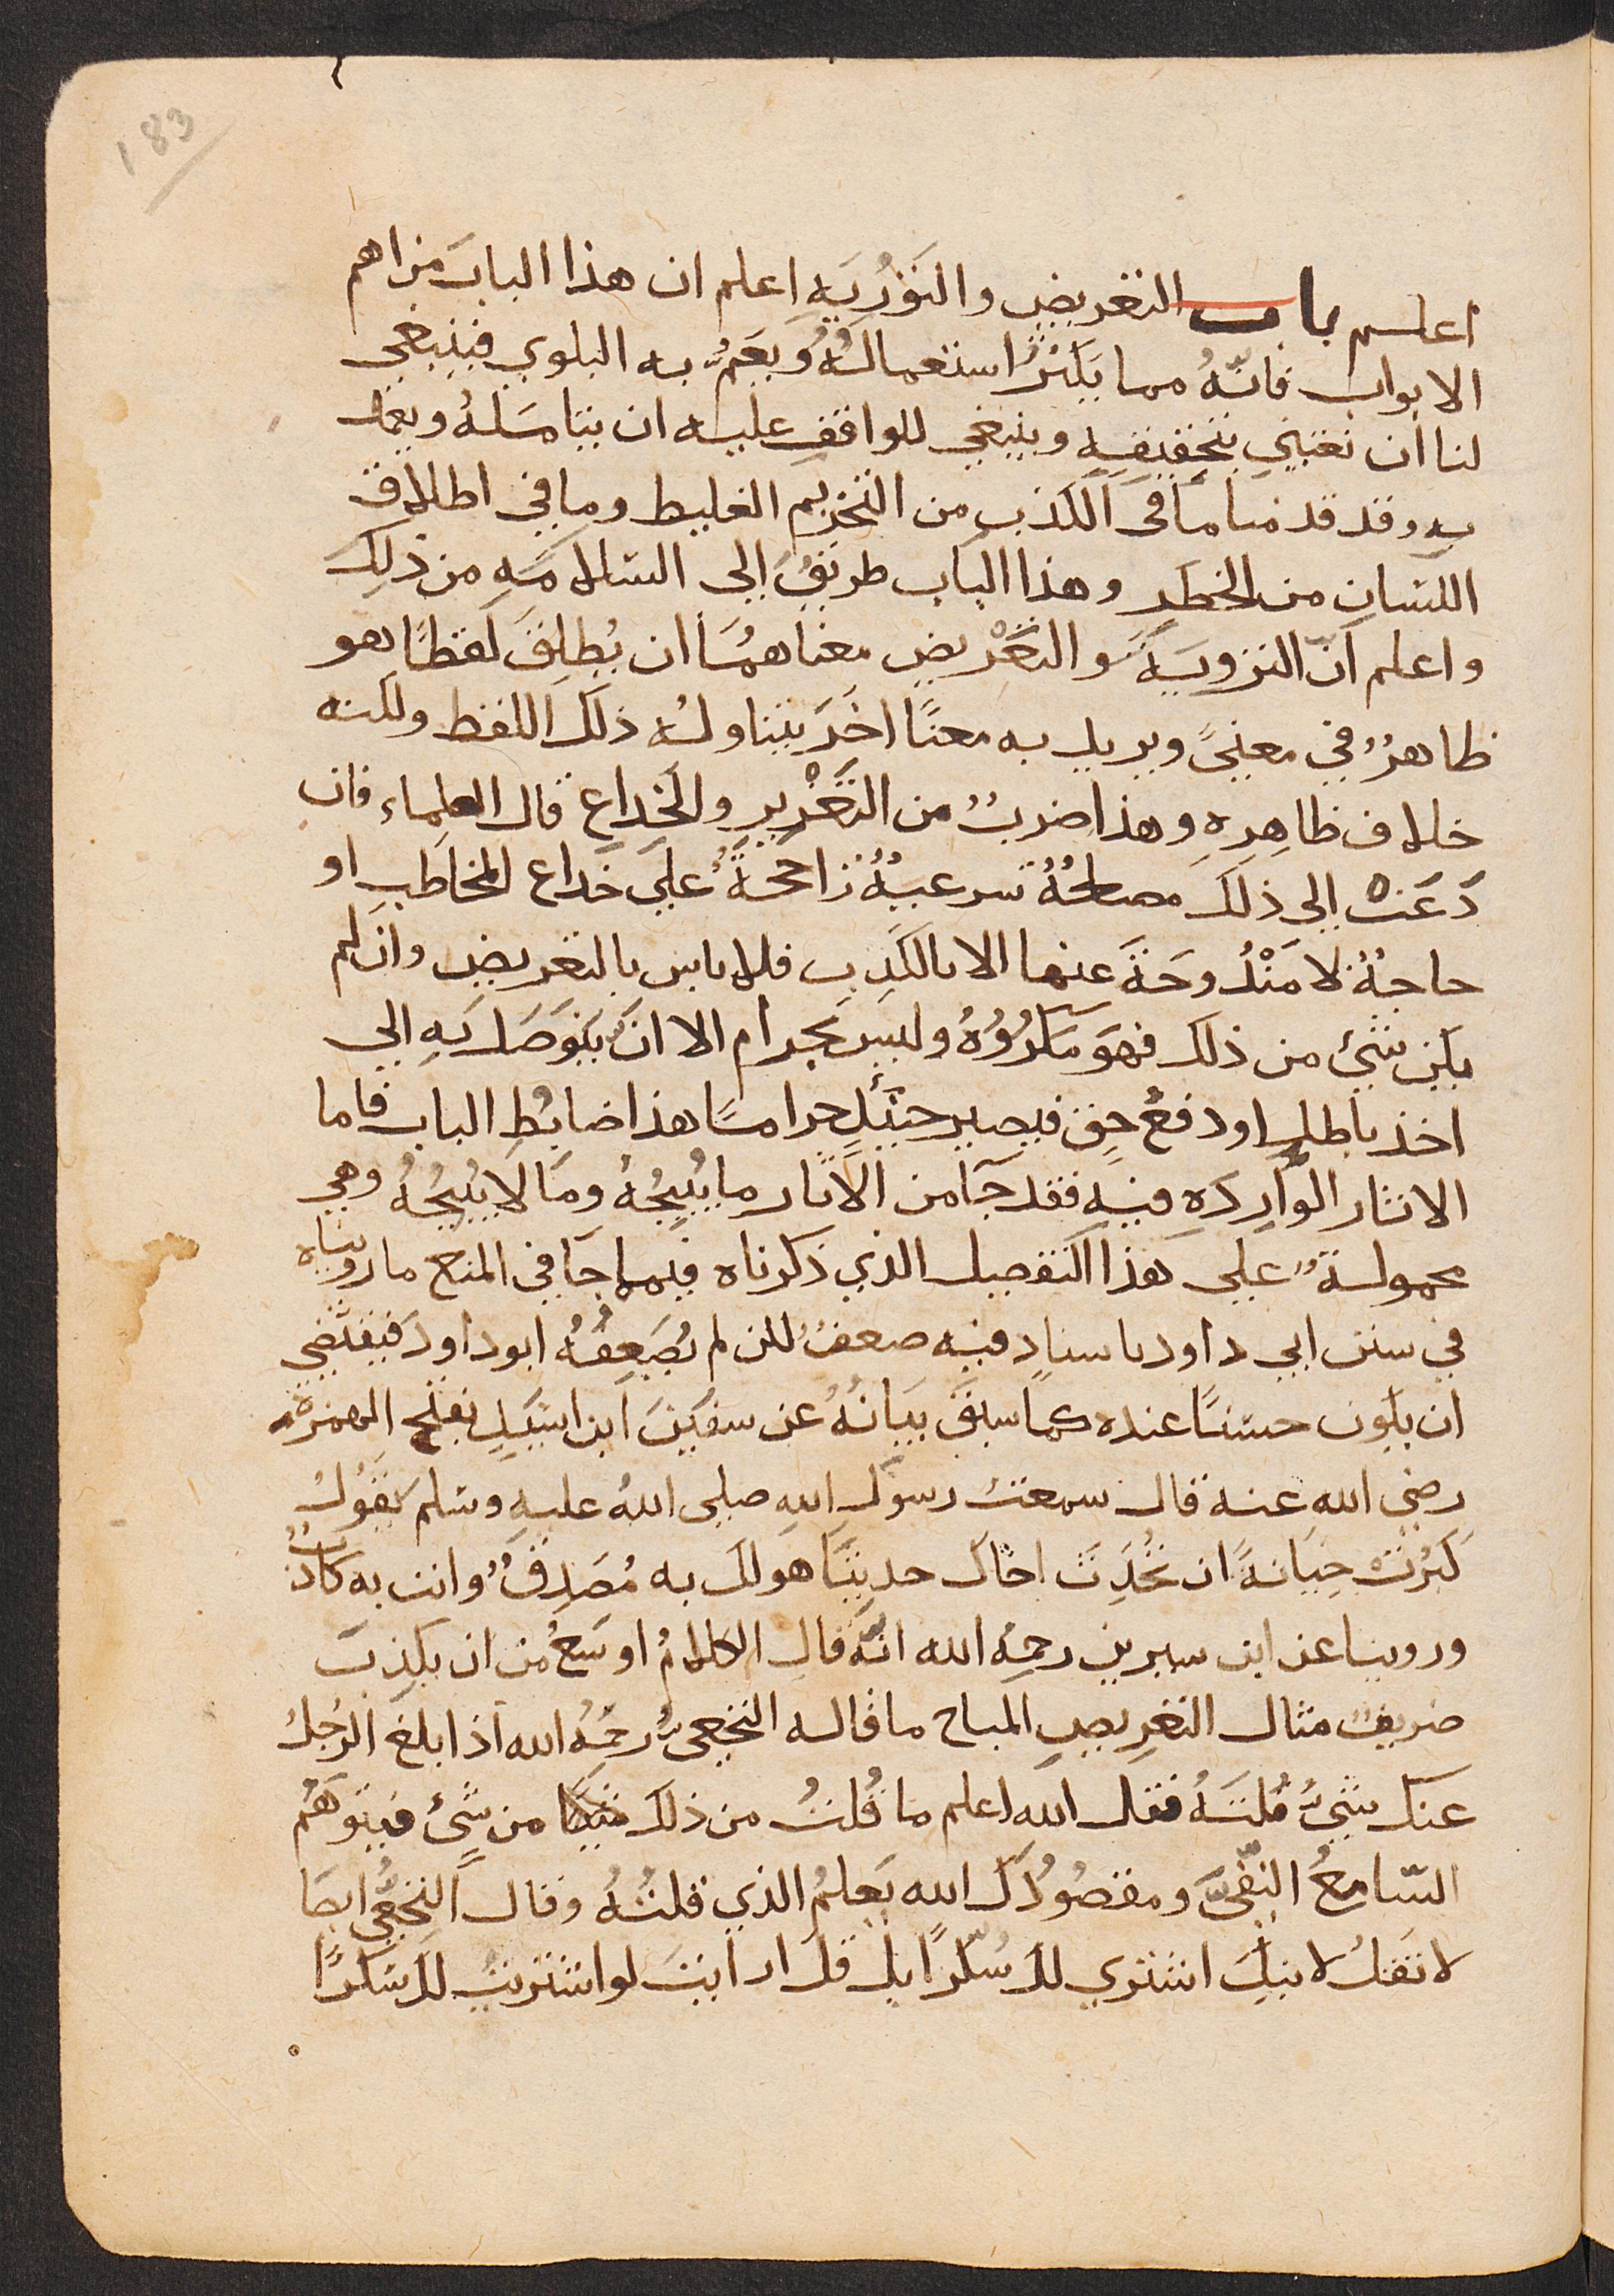 183
اعلم باب التعريض والتَوْرُيَهِ اعلم ان هذا البابَ من اهم
الابواب فانّهُ مما يَكثرُ استعمالهُ ويَعَمُّ به البلوي فينبغي
لنا ان نعتني بتحقيقهِ وينبغي للواقف عليه ان يتامسَلهُ ويعمل
به وقد قدمنا ما في الكذب من التحريم الغليط وما في اطلاق
اللسان من الخطَرِ وهذا الباب طريقُ الي السلامَهِ من ذلِكَ
واعلم انّ التزويَهَ والتعَرْيض معناهمُسَا ان يُطلِقَ لفظًا هو
ظاهرُ في معنيً ويريد به معنًا اخَرَ يتناوله ذلك اللفظ ولكنه
خلاف ظاهِرِهِ وهذا ضربٌ من التَغَرْيرِ والخِداعِ قال العلماء فان
دَعَتْ الي ذلك مصلحةٌ شرعيةٌ زاجحةً علي خداع المخاطَب او
حاجةٌ لا مَنْدُوحَةَ عنها الا بالكَذِب فلا باس بالتعريض وان لم
يكن شيئ من ذلك فهوَ مكرُوُهُ وليس بحرام الا ان يتوَصَلَ بَهِ الي
اخذ باطلٍ او دفع حقٍ فيصير حينئلٍ حرامسًا هذا ضابُطِ الباب فاما
الاثار الوارِدَهِ فيه فقد جَآ من الآثار ما يُبِيحُهُ ومَا لا يُبيحُهُ وهي
محمولةٌ علي هذا التفصيل الذي ذكرناه فيما جَا في المنع ما رويناه
في سنن ابي داود باسنادٍ فيه ضعفٌ لكن لم يُضَعِفُهُ ابو داودَ فيقتضي
ان يكون حسنًا عنده كما سبقَ بيَانَهُ عن سفينَ ابن اسَيَدٍ بفتح الهمزة
رضي الله عنه قال سمعت رسول اللهِ صلي اللهُ عليهِ وسَلم يقوُلُ
كبَرُتْ خِيَانةً ان تُحَدِثَ اخاك حديثًا هو لك به مُصَدِقٌ وانت به كاذبٌ
وروينا عن ابن سيرين رحمِهُ الله انهُ قال الكلامُ اوسَعُ من ان يكذِبَ
ضريفٌ مثال التعَرِيضِ المباح ما قاله النخعيُ رحَمِهُ الله اذا بلغ الرجُلُ
عنك شيئُ قُلتَهُ فقل الله اعلم ما قُلتُ من ذلك من شَيئ فيتوَهَمُ
السّامِعُ النّفَيَّ ومقصُوُدكَ الله يَعلمُ الذي قلتُهُ وقال النخعَّيُ ايضَا
لا تقلْ لابنِكَ اشتري لك سُكّرًا بل قل ارايتَ لو اشتريتُ لك سَكَرًا